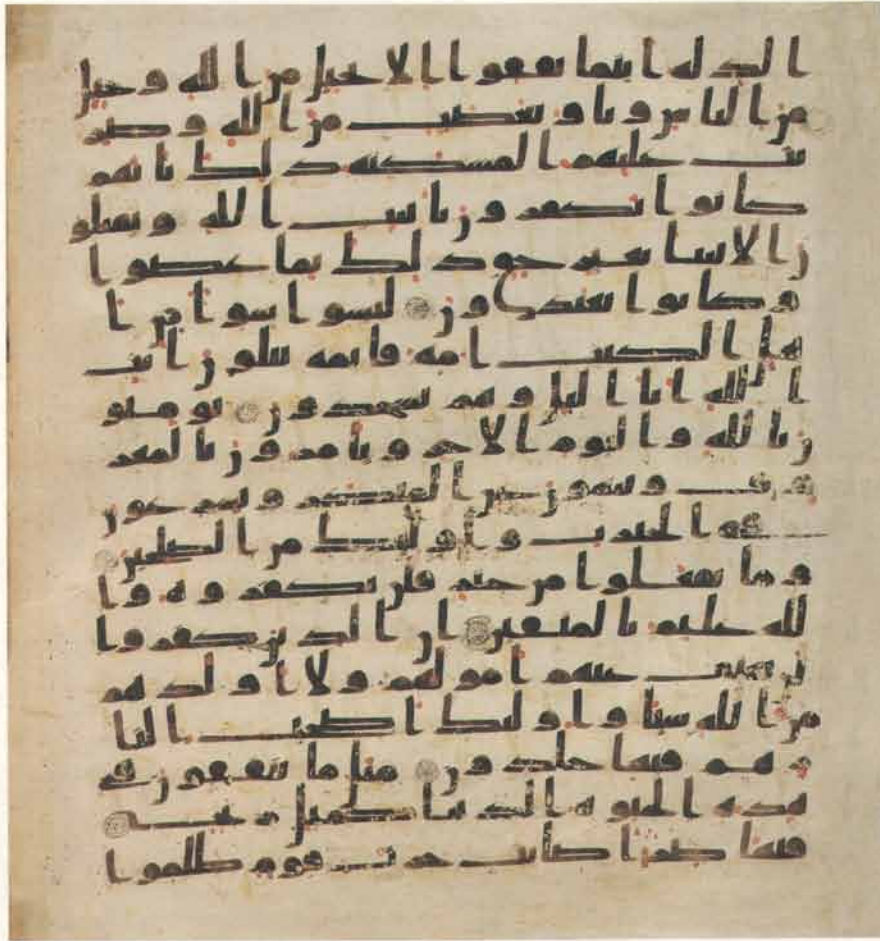 ا الذلة اينما ثقفوا الا بحبل من الله وحبل
من الناس وباو بغضب من الله وضر
بت عليهم المسكنة ذلك بانهم
كانوا يكفرون بايت الله ويقتلو
ن الانبيا بغير حق ذلك بما عصوا
وكانوا يعتدون ليسوا سوا من ا
هل الكتب امة قايمة يتلون ايت
الله انا اليل وهم يسجدون يومنو
ن بالله واليوم الاخر ويامرون بالمعر
وف وينهون عن المنكر ويسرعون
في الخيرت واوليك من الصلحين
وما يفعلوا من خير فلن يكفروه وا
لله عليم بالمتقين ان الذين كفروا
لن تغني عنهم امولهم ولا اولدهم
من الله شيا واوليك اصحب النا
ر هم فيها خلدون مثل ما ينفقون في
هذه الحيوة الدنيا كمثل ريح
فيها صر اصابت حرث قوم ظلموا